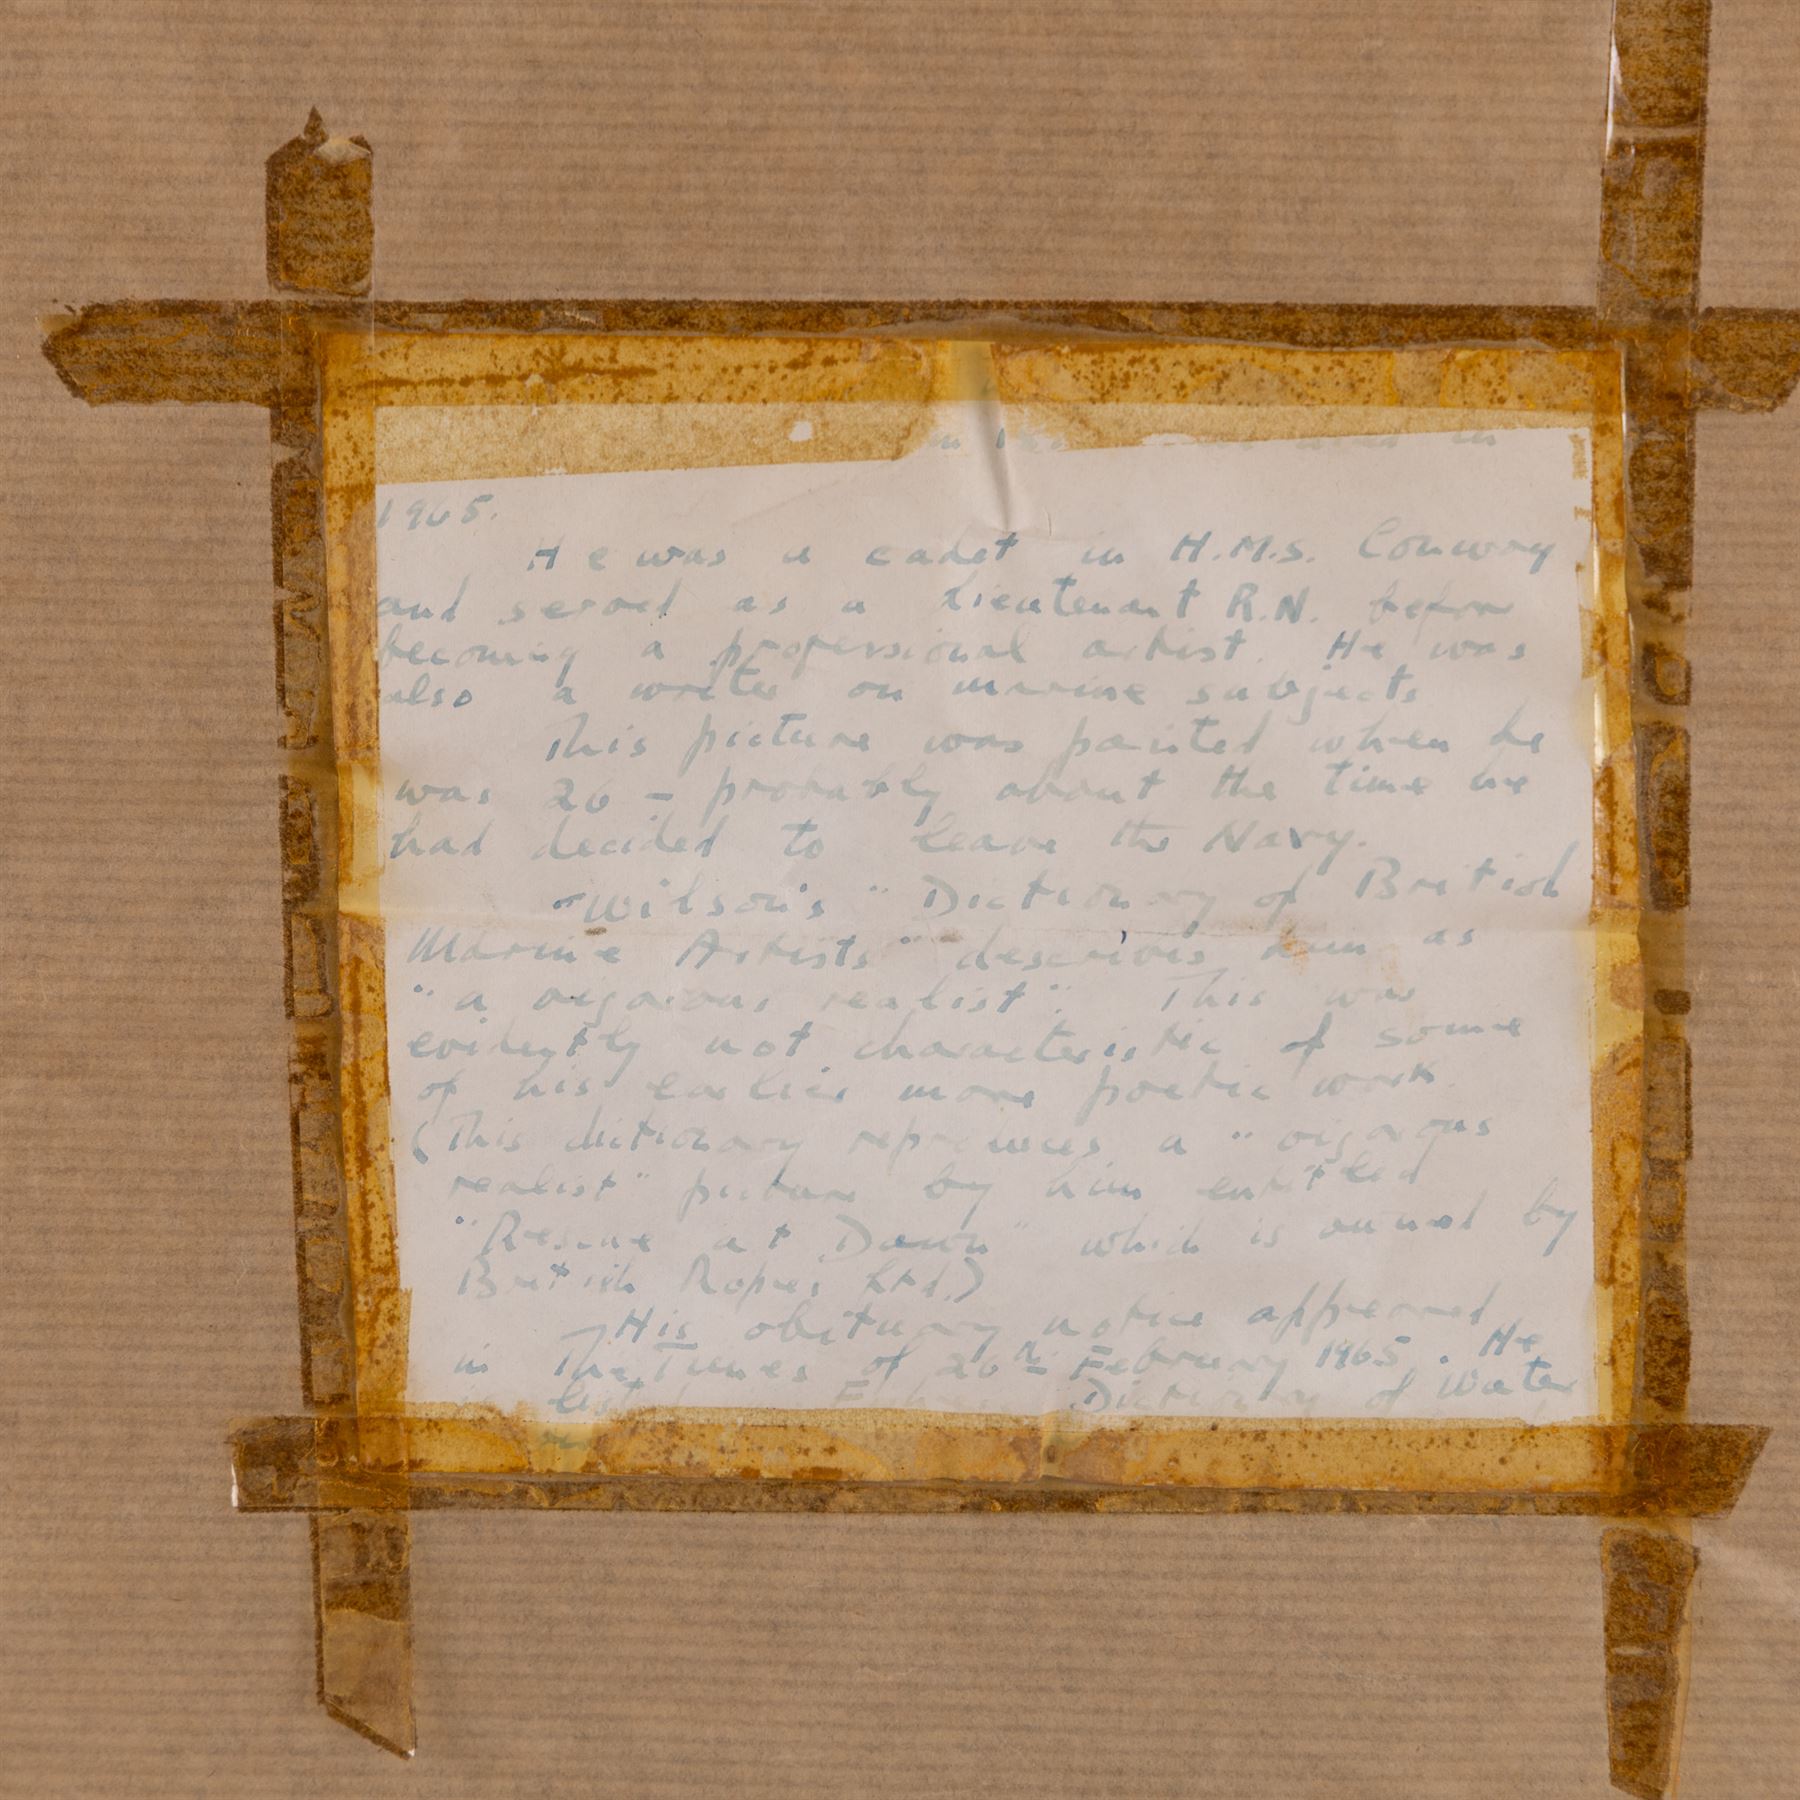 in 18 in
1965.
He was a cadet in H.M.S. Conway
and served as a Lieutenant R.N. before
becoming a professional artist. He was
also a writer on marine subjects
This picture was painted when he
was 26 – probably about the time he
had decided to leave the Navy.
"Wilson's" Dictionary of British
Marine Artists" describes him as
"a vigorous realist". This was
evidently not characteristic of some
of his earlier more poetic work.
(This dictionary reproduces a "vigorous
realist" picture by him entitled
"Rescue at Dawn" which is owned by
British Ropes Ltd.)
His obituary notice appeared
in The Times of 26th February 1965. He
is listed Dictionary of Water